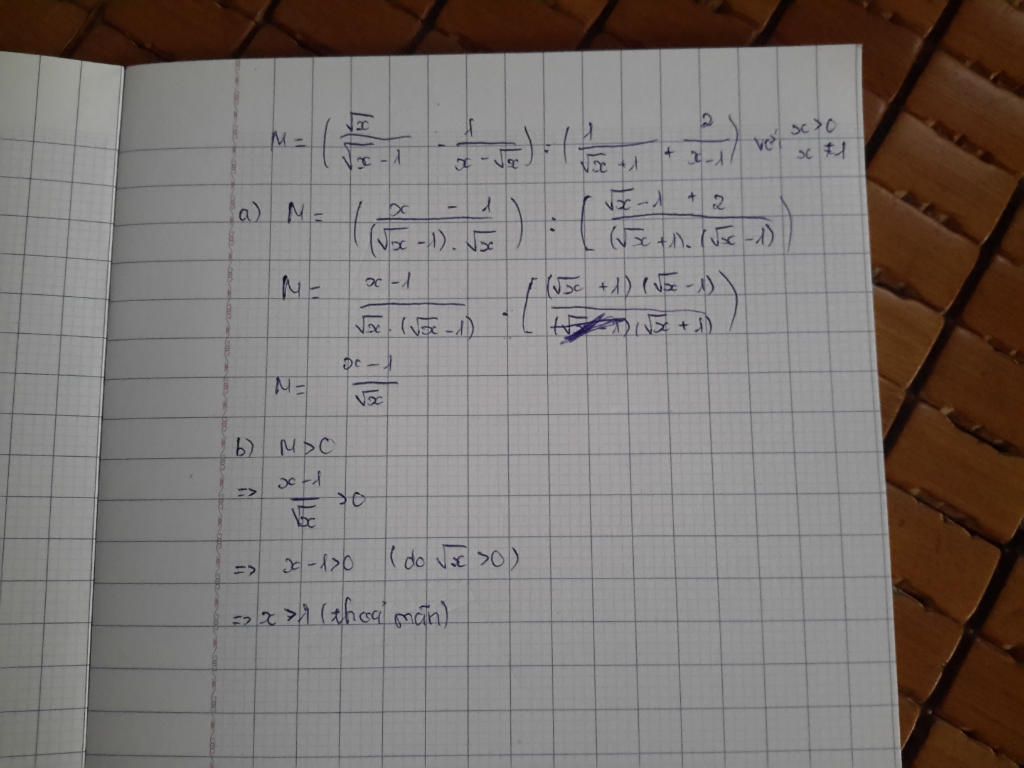 M = ( √x / (√x - 1) - 1 / (x - √x) ) : ( 1 / (√x + 1) + 2 / (x - 1) ) với x > 0 x ≠ 1
a) M = ( (x - 1) / ((√x - 1) . √x) ) : ( (√x - 1 + 2) / ((√x + 1) . (√x - 1)) )
M = (x - 1) / (√x . (√x - 1)) . ( (√x + 1) (√x - 1) / (√x + 1) )
M = (x - 1) / √x
b) M > 0
=> (x - 1) / √x > 0
=> x - 1 > 0 (do √x > 0)
=> x > 1 (thoả mãn)